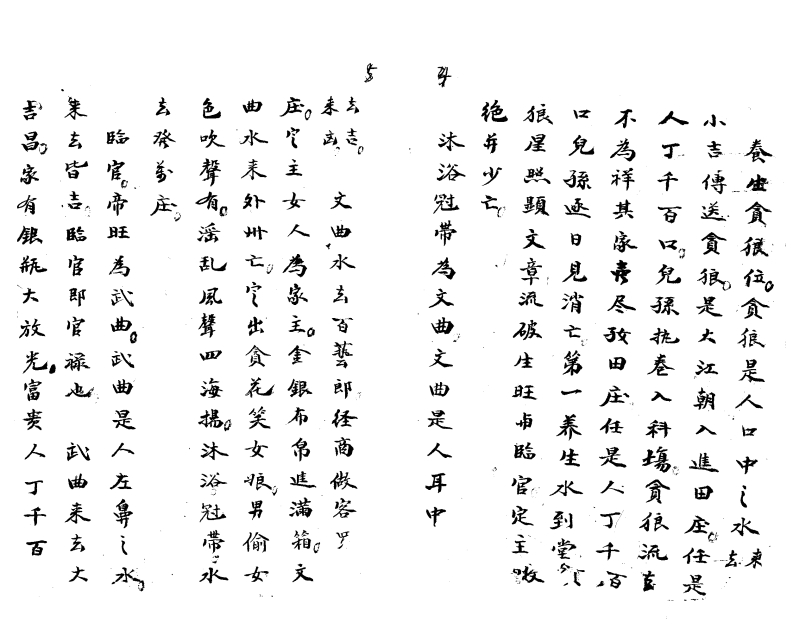 4
養生貪狼位。貪狼是人口中之水
来去
小吉傳送貪狼。是大江朝入進田庄。任是
人丁千百口。兒孫执卷入科塲。貪狼流去
不為祥其家賣尽孜田庄任是人丁千百
口兒孫逐日見消亡。第一养生水到堂
狼星照顕文章流破生旺由臨官定主
絶并少亡。
沐浴冠帶為文曲文曲是人耳中
5
去吉。
来凶
文曲水去百藝郎径商做客
庄。定主女人為家主。金銀布帛進滿箱。文
曲水来外卅亡。定出貪花笑女娘。男偷女
色吹聲有。滛乱風聲四海揚。沐浴冠帶水
去癸萬庄。
臨官。帝旺為武曲。武曲是人左鼻之水。
來去皆吉。臨官即官禄也 武曲来去大
吉昌。家有銀瓶大放光。富贵人丁千百